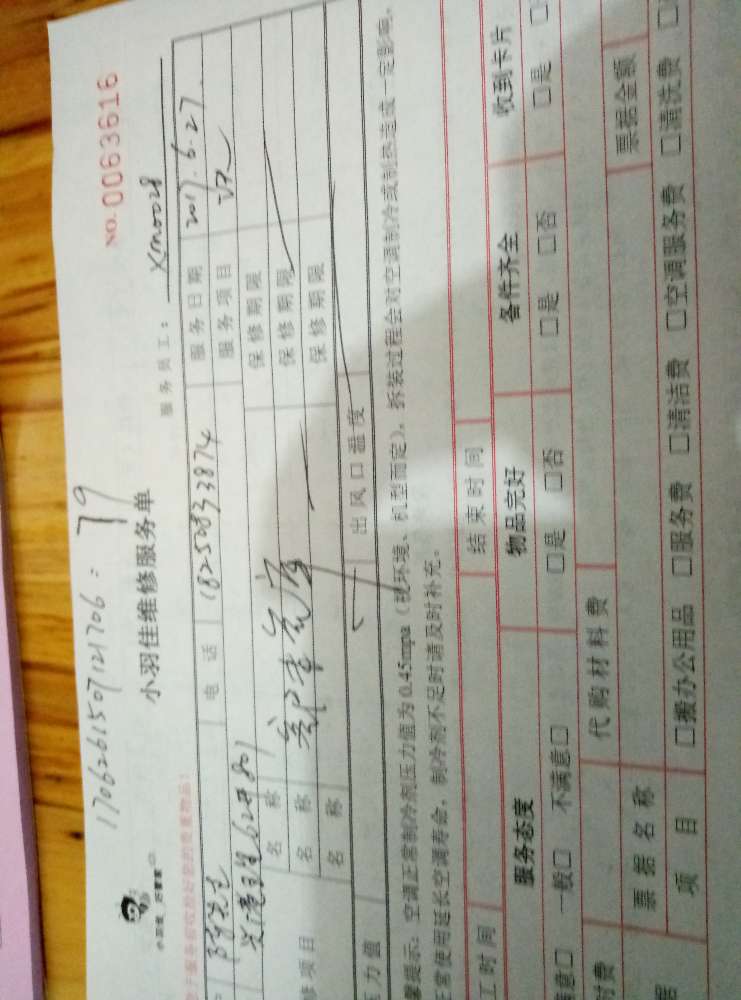 170626150712170b: 79
NO. 0063616
小羽佳 好管家
小羽佳维修服务单
服务员工: XM0028
电话 18250833874 服务日期 2017.6.27.
628号801 服务项目
名称 保修期限
修项目 名称 保修期限
名称 保修期限
压力值 出风口温度
馨提示: 空调正常制冷剂压力值为0.45mpa(视环境、机型而定), 拆装过程会对空调制冷或制热造成一定影响,
正常使用延长空调寿命, 制冷剂不足时请及时补充。
工时间 结束时间
服务态度 物品完好 备件齐全 收到卡片
满意□ 一般□ 不满意□ □是 □否 □是 □否 □是
付费 代购材料费
票据名称 票据金额
项目 □搬办公用品 □服务费 □清洁费 □空调服务费 □清洗费